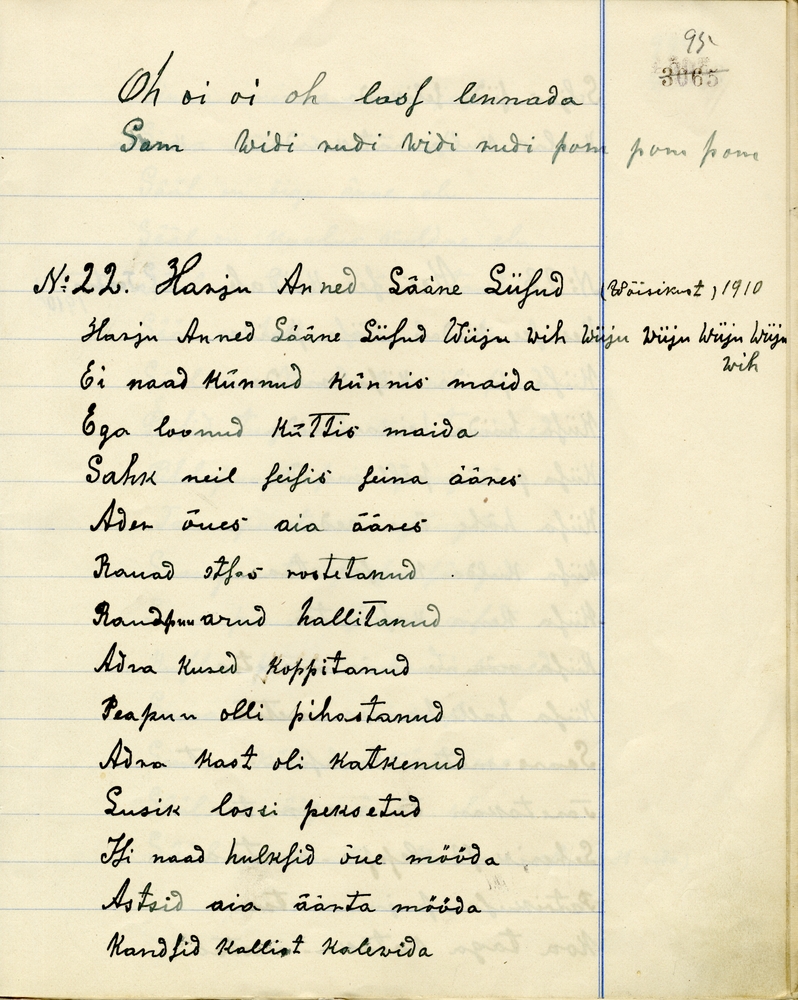 95
3065
Oh oi oi oh lass lennada
Sam widi rudi widi rudi pom pom pom
№ 22. Harju Anned Lääne Liisud (Wõisikust, 1910
Harju Anned Lääne Liisud Wiiju wih Wiiju Wiiju Wiiju Wiiju
wih
Ei naad künnud künnis maida
Ega loonud küttis maida
Sahk neil seisis seina ääres
Ader õues aia ääres
Rauad otsas rostetanud
Raudpuu arud hallitanud
Adra kured koppitanud
Peapuu olli pihastanud
Adra kast oli katkenud
Lusik lossi peksetud
Isi naad hulksid õue mööda
Astsid aia äärta mööda
Kandsid kallist kalewida